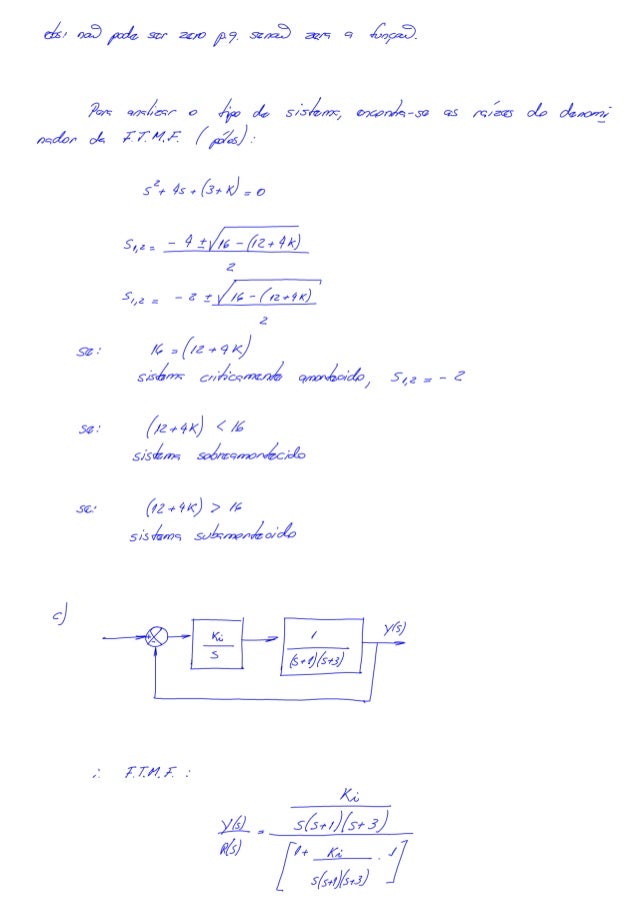 obs: não pode ser zero p.q. senão zera a função.
Para analisar o tipo do sistema, encontra-se as raízes do denomi
nador da F.T.M.F. (pólos):
s² + 4s + (3+K) = 0
S1,2 = - 4 ± √16 - (12 + 4K)
2
S1,2 = - 2 ± √16 - (12+4K)
2
se: 16 = (12 + 4K)
sistema criticamente amortecido, S1,2 = - 2
se: (12 + 4K) < 16
sistema sobreamortecido
se: (12 + 4K) > 16
sistema subamortecido
c)
+ - Ki / s 1 / (s+1)(s+3) Y(s)
∴ F.T.M.F. :
Ki
Y(s) / R(s) = s(s+1)(s+3)
[1 + Ki / s(s+1)(s+3) . 1]